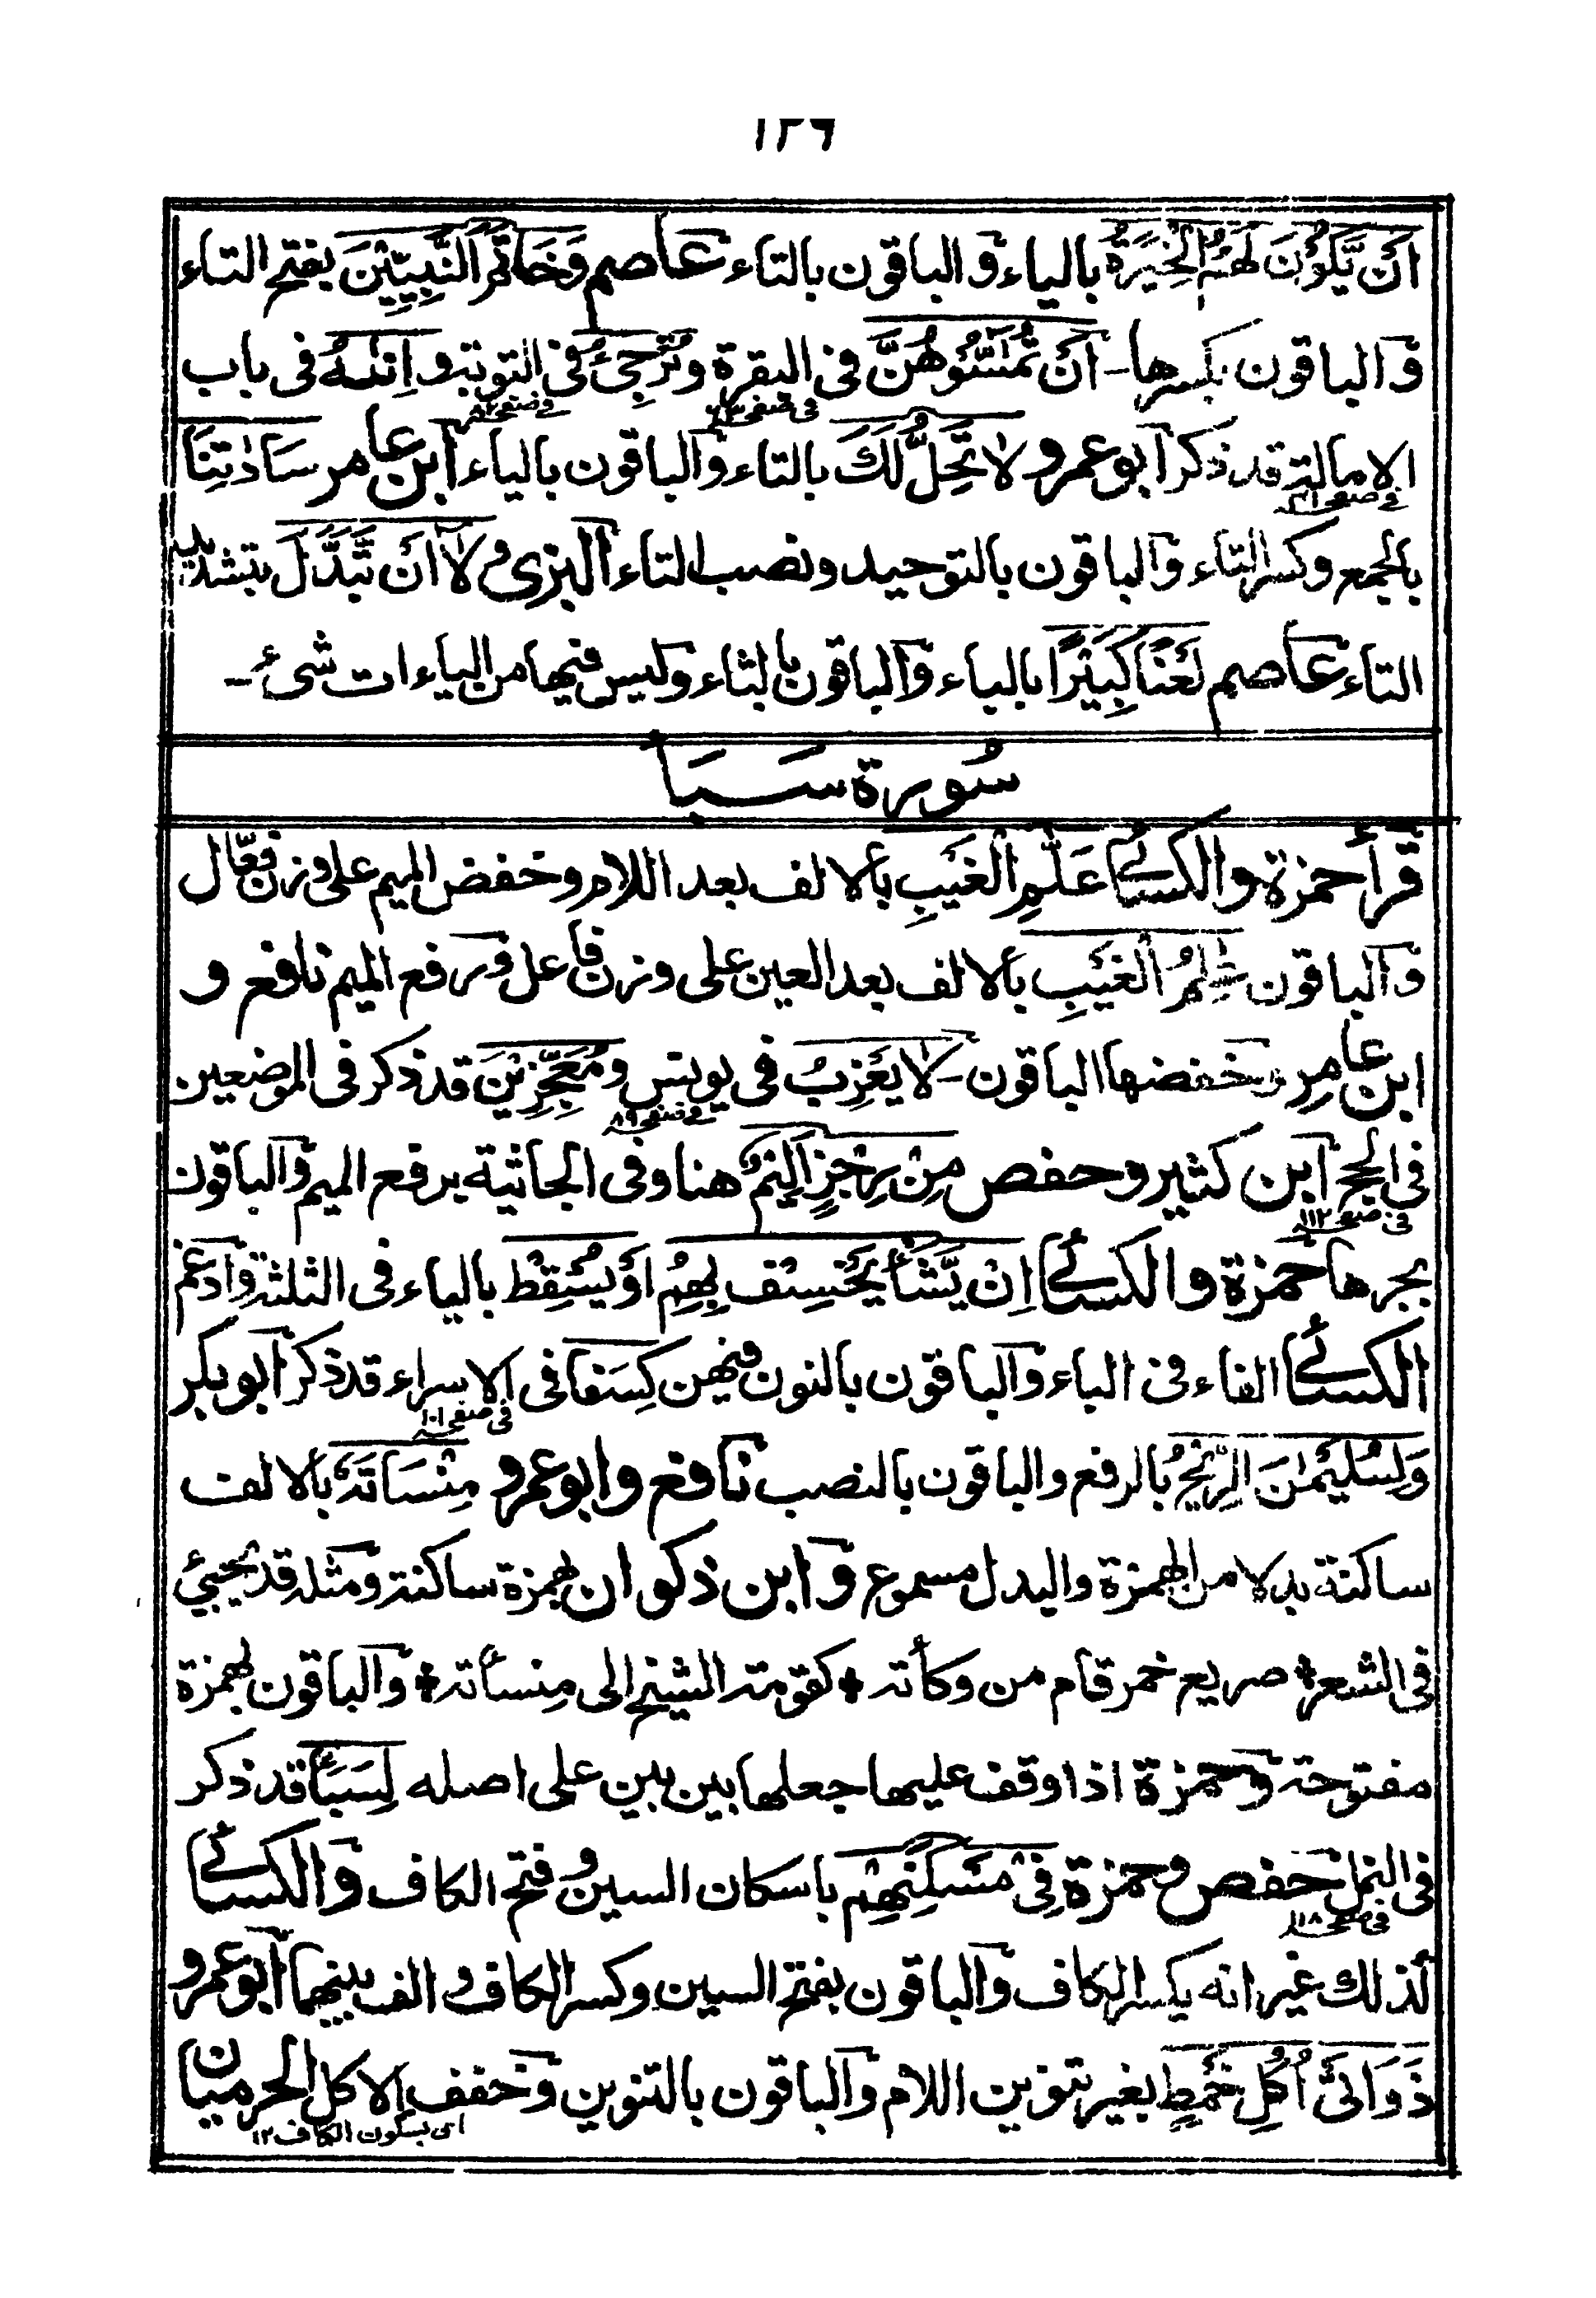 ١٢٦
اَنْ يَّكُوْنَ لَهُمُ الْخِيَرَةُ بالياء والباقون بالتاء عاصم وَخَاتَمَ النَّبِيّٖنَ بفتح التاء
والباقون بكسرها۔ اَنْ تَمَسُّوْهُنَّ فى البقرة وتُرْجِئُ فى التوبة و اِنٰىهُ فى باب
فى صفحہ ٨٢
الامالة قد ذكر ابو عمرو لَا تَحِلُّ لَكَ بالتاء والباقون بالياء ابن عامر سَادٰتِنَا
بالجمع وكسر التاء والباقون بالتوحيد ونصب التاء البزى ولَا اَنْ تَّبَدَّلَ بتشديد
التاء عاصم لَعْنًا كَبِيْرًا بالباء والباقون بالثاء وليس فيها من الياءات شىء۔
سُورة سَبَا
قرأ حمزة والكسائے عَلّٰمِ الْغَيْبِ بالالف بعد اللام وخفض الميم على وزن فعّال
والباقون عٰلِمُ الْغَيْبِ بالالف بعد العين على وزن فاعل ورفع الميم نافع و
ابن عامر وخفضها الباقون۔ لَا يَعْزِبُ فى يونس و مُعَجِّزِيْنَ قد ذكر فى الموضعين
فى صفحہ ٨٩
فى الحج ابن كثير وحفص مِنْ رِجْزٍ اَلِيْمٌ هنا وفى الجاثية برفع الميم والباقون
فى صفحہ ١١٢
بجرها حمزة والكسائے اِنْ يَّشَأْ يَخْسِفْ بِهِمُ اَوْ يُسْقِطْ بالياء فى الثلثة وادغم
الكسائے الفاء فى الباء والباقون بالنون فيهن كِسَفًا فى الاسراء قد ذكر ابو بكر
فى صفحہ ١٠١
وَلِسُلَيْمٰنَ الرِّيْحُ بالرفع والباقون بالنصب نافع وابو عمرو مِنْسَاتَهٗ بالالف
ساكنة بدلا من الهمزة والبدل مسموع وابن ذكوان بهمزة ساكنة ومثله قد يجيئ
فى الشعر * صريع خمر قام من وكأته * كقومة الشيخ الى منسأته * والباقون بهمزة
مفتوحة وحمزة اذا وقف عليها جعلها بين بين على اصله لِسَبَأٍ قد ذكر
فى النمل حفص وحمزة فِىْ مَسْكَنِهِمْ باسكان السين وفتح الكاف والكسائے
فى صفحہ ١١٨
كذلك غير انه يكسر الكاف والباقون بفتح السين وكسر الكاف والف بينهما ابو عمرو
ذَوَاتَىْ اُكُلِ خَمْطٍ بغير تنوين اللام والباقون بالتنوين وخفف الاكل الحرميان
اى بسكون الكاف ١٢